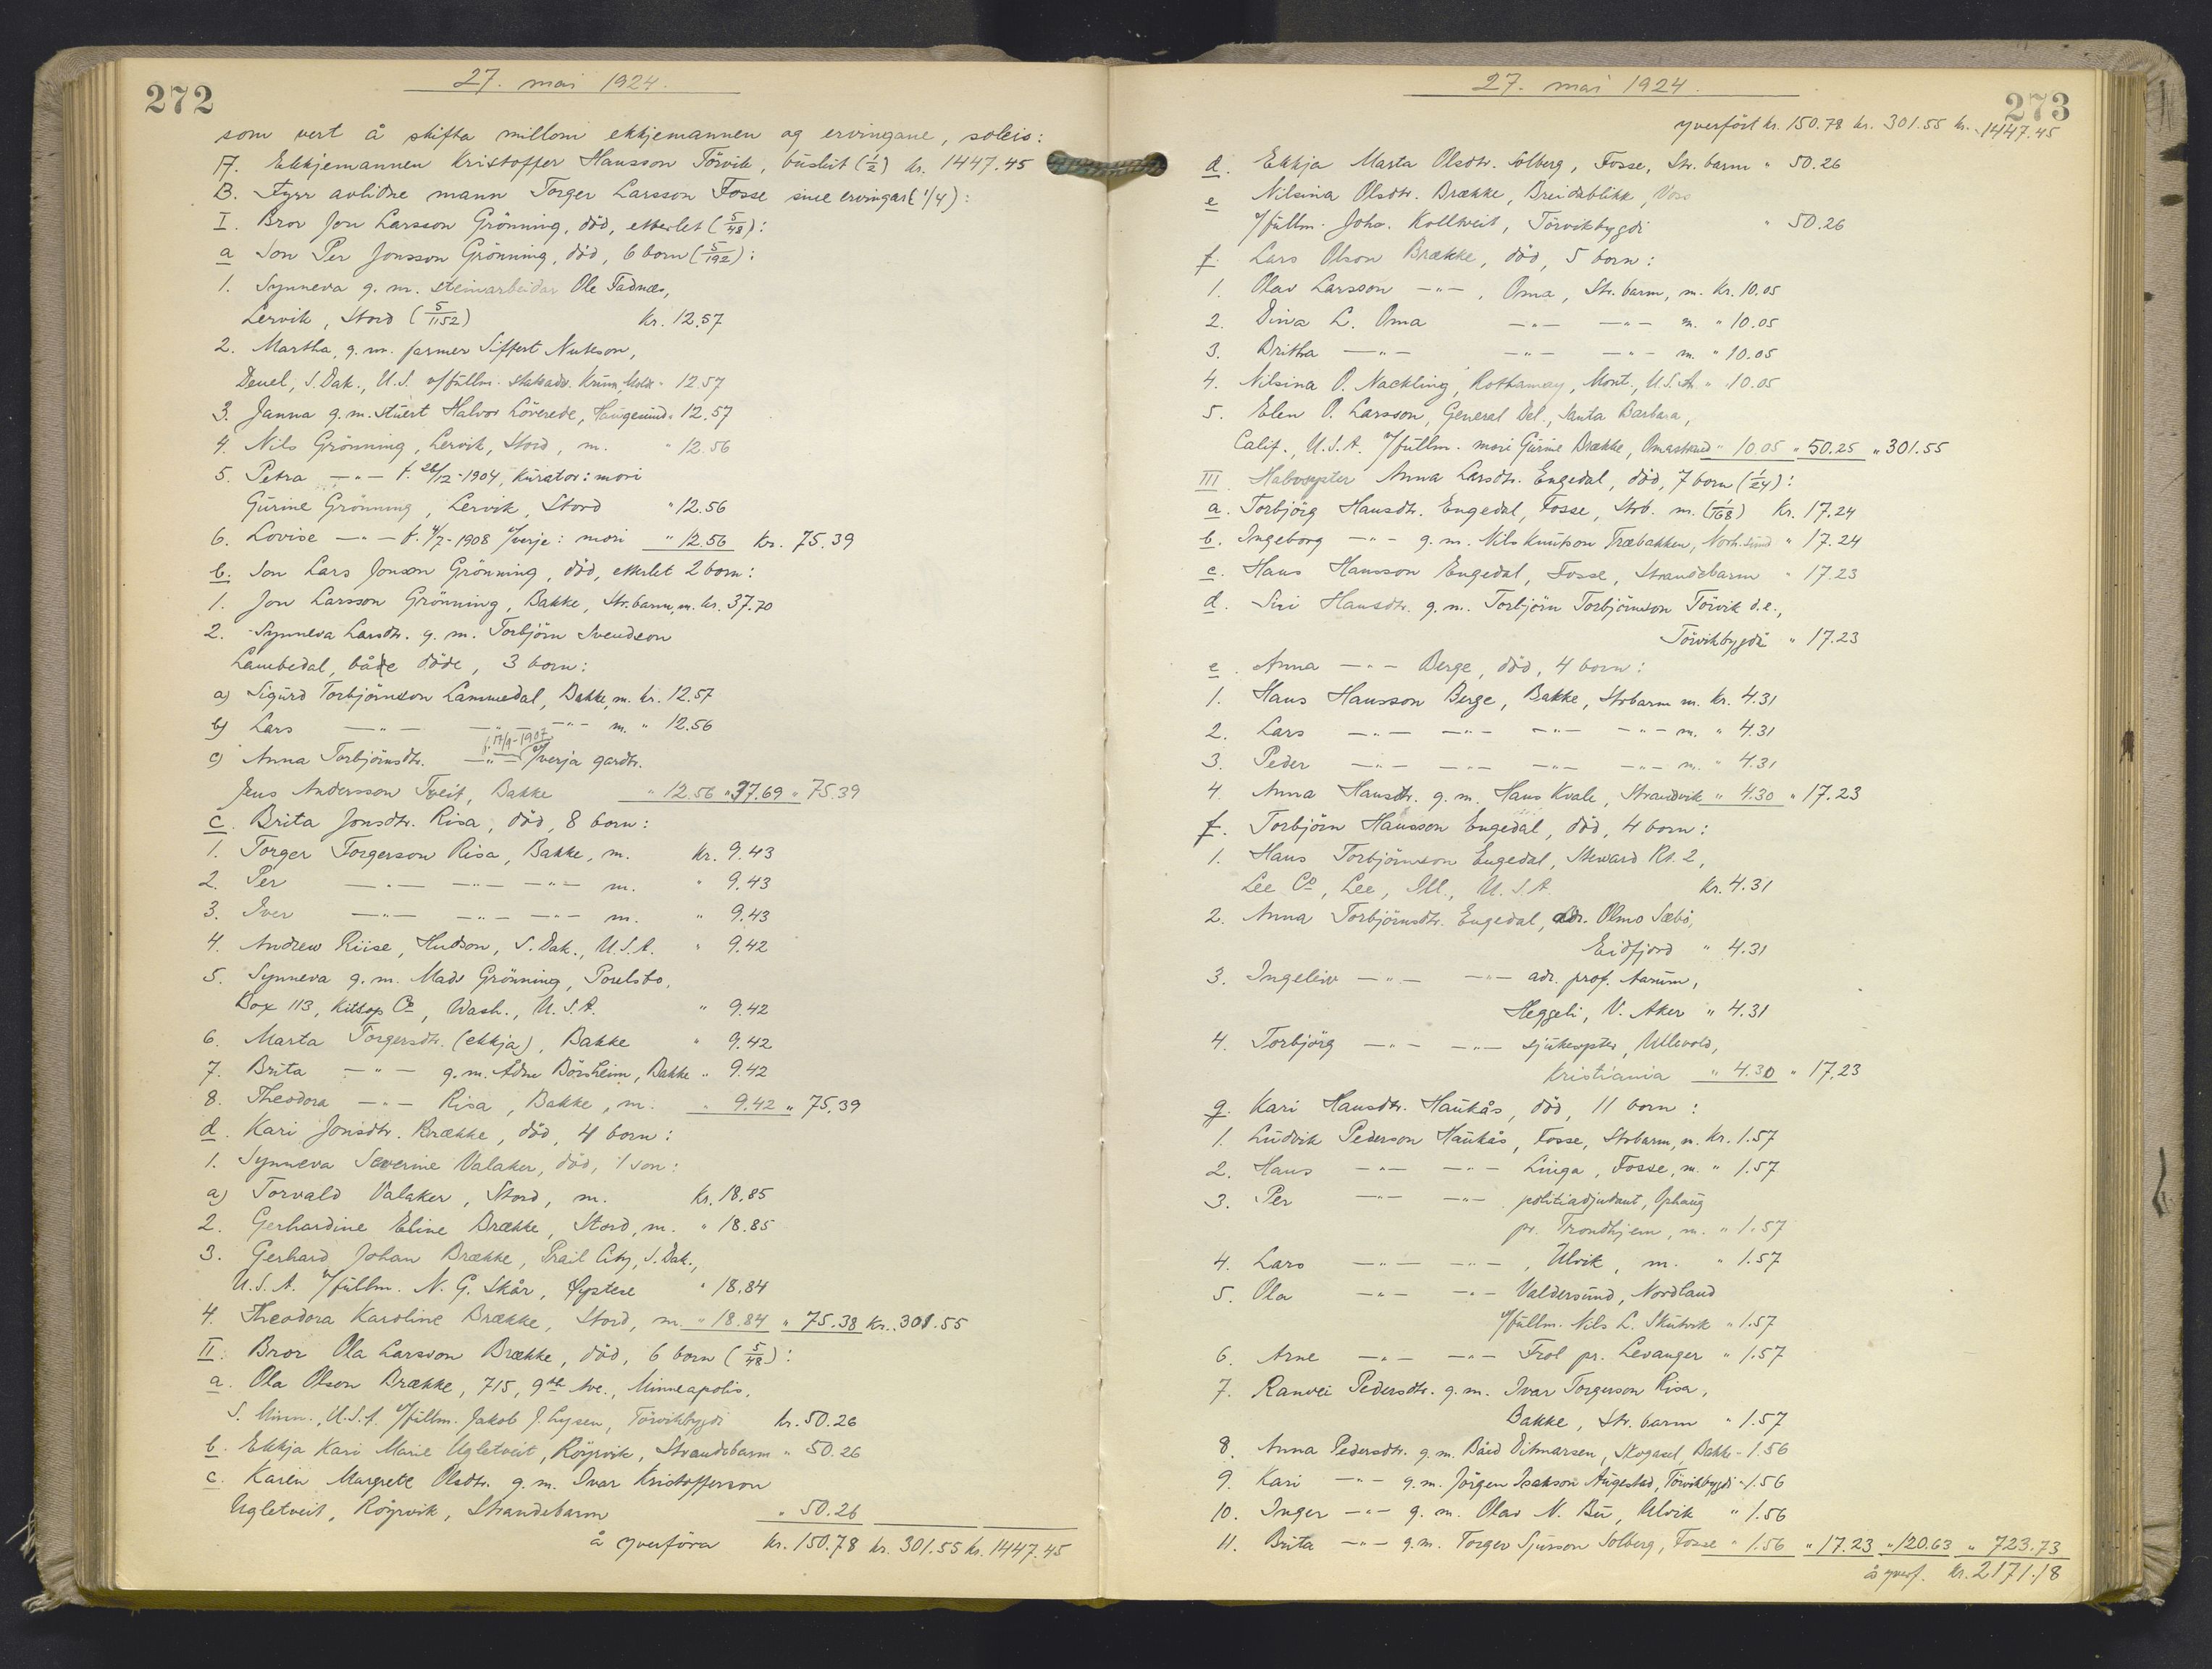 272
27. mai 1924.
som vert å skifta millom ekkjemannen og ervingane, soleis:
A. Ekkjemannen Kristoffer Hansson Törvik, buslut (1/2) kr. 1447.45
B. Fyrr avlidne mann Torger Larsson Fosse sine ervingar (1/4):
I. Bror Jon Larsson Grönning, död, etterlet (5/48):
a Son Per Jonsson Grönning, död, 6 born (5/192):
1. Synneva g. m. steinarbeidar Ole Tadnes,
Lervik, Stord (5/1152) kr. 12.57
2. Martha, g. m. farmer Siffert Nutson,
Deuel, S. Dak., U.S. v/fullm. statsadv. Krüm, Molde " 12.57
3. Janna g. m. stuert Halvor Löverede, Haugesund " 12.57
4. Nils Grönning, Lervik, Stord, m. " 12.56
5. Petra —"— f. 26/12-1904, kurator: mori
Gurine Grönning, Lervik, Stord " 12.56
6. Lovise —"— f. 4/7-1908 v/verje: mori " 12.56 kr. 75.39
b. Son Lars Jonson Grönning, död, etterlet 2 born:
1. Jon Larsson Grönning, Bakke, Str.barm, m. kr. 37.70
2. Synneva Larsdtr. g. m. Torbjörn Svendson
Lambedal, både döde, 3 born:
a) Sigurd Torbjörnson Lammedal, Bakke, m. kr. 12.57
b) Lars —"— —"— —"— m. " 12.56
c) Anna Torbjörnsdtr. —"— f. 17/9-1907 v/verja gardbr.
Jens Andersson Tveit, Bakke " 12.56 " 37.69 " 75.39
c. Brita Jonsdtr. Risa, död, 8 born:
1. Torger Torgerson Risa, Bakke, m. kr. 9.43
2. Per —"— —"— —"— m. " 9.43
3. Iver —"— —"— —"— m. " 9.43
4. Andrew Riise, Hudson, S. Dak., U.S.A. " 9.42
5. Synneva g. m. Mads Grönning, Poulsbo,
Box 113, Kitsap Co, Wash., U.S.A. " 9.42
6. Marta Torgersdtr. (ekkja), Bakke " 9.42
7. Brita —"— g. m. Adne Börsheim, Bakke " 9.42
8. Theodora —"— Risa, Bakke, m. " 9.42 " 75.39
d. Kari Jonsdtr. Brække, död, 4 born:
1. Synneva Severine Valaker, död, 1 son:
a) Torvald Valaker, Stord, m. kr. 18.85
2. Gerhardine Eline Brække, Stord, m. " 18.85
3. Gerhard Johan Brække, Trail City, S. Dak.,
U.S.A. v/fullm. N. G. Skår, Øystese " 18.84
4. Theodora Karoline Brække, Stord, m. " 18.84 " 75.38 kr. 301.55
II. Bror Ola Larsson Brække, död, 6 born (5/48):
a. Ola Olson Brække, 715, 9th Ave., Minneapolis,
S. Minn., U.S.A. v/fullm. Jakob J. Lysen, Törvikbygdi kr. 50.26
b. Ekkja Kari Marie Ugletveit, Röyrvik, Strandebarm " 50.26
c. Karen Margrete Olsdtr. g. m. Ivar Kristofferson
Ugletveit, Röyrvik, Strandebarm " 50.26
å yverföra kr. 150.78 kr. 301.55 kr. 1447.45
273
27. mai 1924.
yverfört kr. 150.78 kr. 301.55 kr. 1447.45
d. Ekkja Marta Olsdtr. Solberg, Fosse, Str. barm " 50.26
e Nilsina Olsdtr. Brække, Breidablikk, Voss
v/fullm. Johs. Kolltveit, Törvikbygdi " 50.26
f. Lars Olson Brække, död, 5 born:
1. Olav Larsson —"—, Oma, Str. barm, m. kr. 10.05
2. Dina L. Oma —"— —"— m. " 10.05
3. Britha —"— —"— —"— m. " 10.05
4. Nilsina O. Nackling, Rothamay, Mont., U.S.A. " 10.05
5. Elen O. Larsson, General Del., Santa Barbara,
Calif., U.S.A. v/fullm. mori Gurine Brække, Omastrand " 10.05 " 50.25 " 301.55
III. Halvsyster Anna Larsdtr. Engedal, död, 7 born (1/24):
a. Torbjörg Hansdtr. Engedal, Fosse, Strb. m. (1/168) kr. 17.24
b. Ingeborg —"— g. m. Nils Knutson Træbakken, Norh.sund " 17.24
c. Hans Hansson Engedal, Fosse, Strandebarm " 17.23
d. Siri Hansdtr. g. m. Torbjörn Torbjörnson Törvik d.e.,
Törvikbygdi " 17.23
e. Anna —"— Berge, död, 4 born:
1. Hans Hansson Berge, Bakke, Strbarm m. kr. 4.31
2. Lars —"— —"— —"— —"— m. " 4.31
3. Peder —"— —"— —"— —"— m. " 4.31
4. Anna Hansdtr. g. m. Hans Kvale, Strandvik " 4.30 " 17.23
f. Torbjörn Hansson Engedal, död, 4 born:
1. Hans Torbjörnson Engedal, Steward Rt. 2,
Lee Co, Lee, Ill., U.S.A. kr. 4.31
2. Anna Torbjörnsdtr. Engedal, adr. Olmo Sæbö,
Eidfjord " 4.31
3. Ingeleiv —"— —"— adr. prof. Aarum,
Heggeli, V. Aker " 4.31
4. Torbjörg —"— —"— sjukesyster, Ullevold,
Kristiania " 4.30 " 17.23
g. Kari Hansdtr. Haukås, död, 11 born:
1. Ludvik Pederson Haukås, Fosse, Strbarm, m. kr. 1.57
2. Hans —"— —"— Linga, Fosse, m. " 1.57
3. Per —"— —"— politiadjudant, Ophaug
pr. Trondhjem, m. " 1.57
4. Lars —"— —"—, Ulvik, m. " 1.57
5. Ola —"— —"— Valdersund, Nordland
v/fullm. Nils L. Skutvik " 1.57
6. Arne —"— —"— Frol pr. Levanger " 1.57
7. Ranvei Pedersdtr. g. m. Ivar Torgerson Risa,
Bakke, Str. barm " 1.57
8. Anna Pedersdtr. g. m. Båd Ditmarsen, Skogasel, Bakke " 1.56
9. Kari —"— g. m. Jörgen Isakson Augestad, Törvikbygdi " 1.56
10. Inger —"— g. m. Olav N. Bu, Ulvik " 1.56
11. Brita —"— g. m. Torger Sjurson Solberg, Fosse " 1.56 " 17.23 " 120.63 " 723.73
å yverf. kr. 2171.18